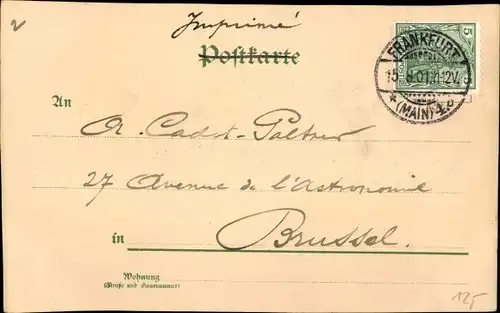 2
Imprimé
Postkarte
5
FRANKFURT
15.8.01.11-12V.
* (MAIN) 1.
An
A. Cadet-
27 Avenue de l'Astronomie
in Brussel.
Wohnung
(Straße und Hausnummer)
12,-